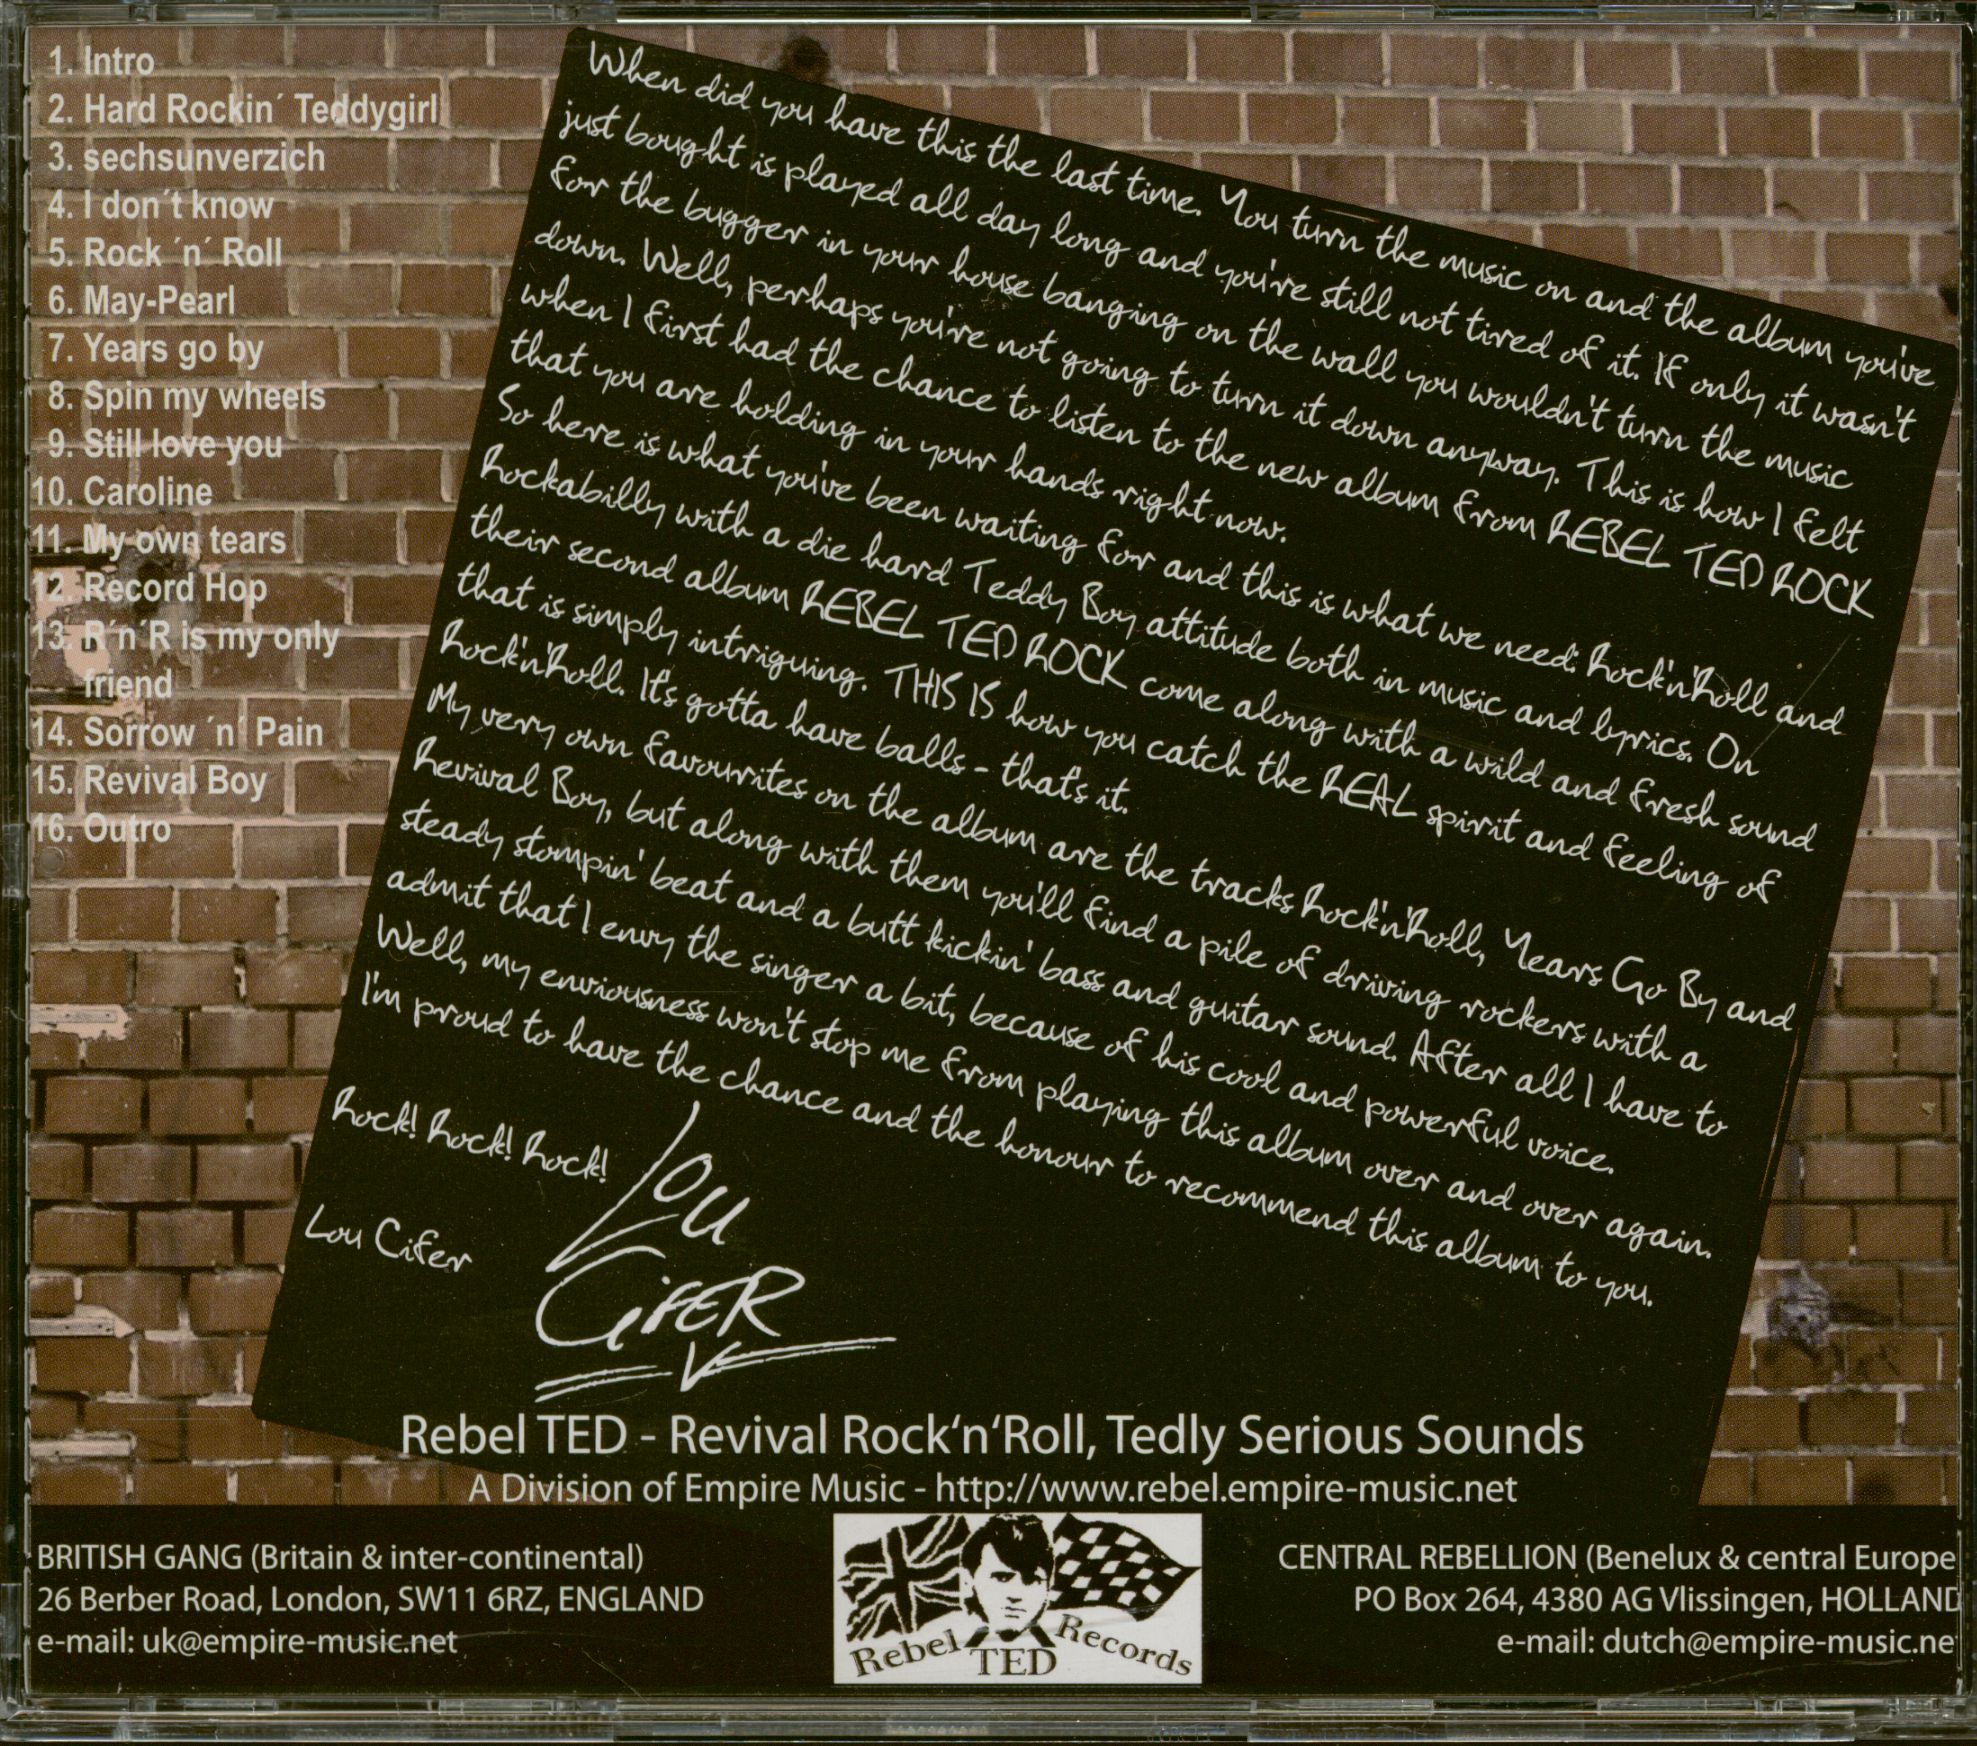 1. Intro
2. Hard Rockin´ Teddygirl
3. sechsunverzich
4. I don´t know
5. Rock ´n´ Roll
6. May-Pearl
7. Years go by
8. Spin my wheels
9. Still love you
10. Caroline
11. My own tears
12. Record Hop
13. R´n´R is my only
friend
14. Sorrow ´n´ Pain
15. Revival Boy
16. Outro
When did you have this the last time. You turn the music on and the album you've
just bought is played all day long and you're still not tired of it. If only it wasn't
for the bugger in your house banging on the wall you wouldn't turn the music
down. Well, perhaps you're not going to turn it down anyway. This is how I felt
when I first had the chance to listen to the new album from REBEL TED ROCK
that you are holding in your hands right now.
So here is what you've been waiting for and this is what we need: Rock'n'Roll and
Rockabilly with a die hard Teddy Boy attitude both in music and lyrics. On
their second album REBEL TED ROCK come along with a wild and fresh sound
that is simply intriguing. THIS IS how you catch the REAL spirit and feeling of
Rock'n'Roll. It's gotta have balls - that's it.
My very own favourites on the album are the tracks Rock'n'Roll, Years Go By and
Revival Boy, but along with them you'll find a pile of driving rockers with a
steady stompin' beat and a butt kickin' bass and guitar sound. After all I have to
admit that I envy the singer a bit, because of his cool and powerful voice.
Well, my enviousness won't stop me from playing this album over and over again.
I'm proud to have the chance and the honour to recommend this album to you.
Rock! Rock! Rock!
Lou Cifer
Lou
Cifer
Rebel TED - Revival Rock‘n‘Roll, Tedly Serious Sounds
A Division of Empire Music - http://www.rebel.empire-music.net
BRITISH GANG (Britain & inter-continental)
26 Berber Road, London, SW11 6RZ, ENGLAND
e-mail: uk@empire-music.net
Rebel TED Records
CENTRAL REBELLION (Benelux & central Europe
PO Box 264, 4380 AG Vlissingen, HOLLAND
e-mail: dutch@empire-music.ne